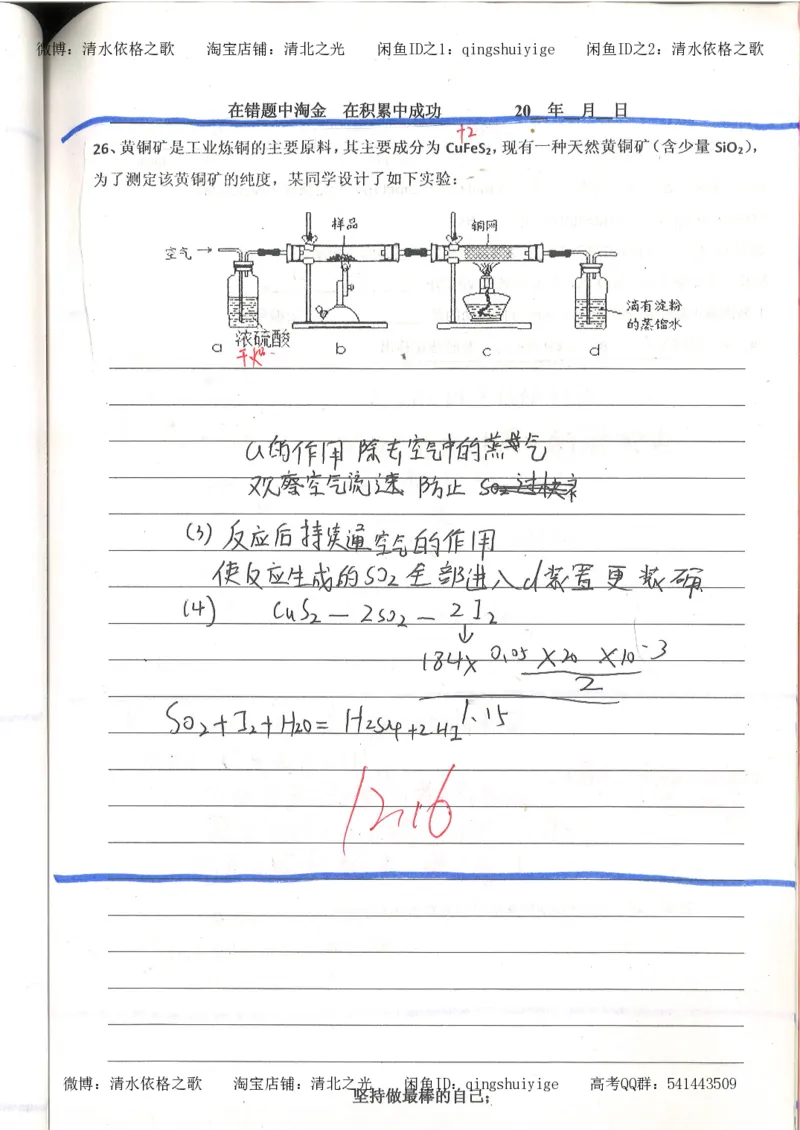 微博：清水依格之歌 淘宝店铺：清北之光 闲鱼ID之1：qingshuiyige 闲鱼ID之2：清水依格之歌
在错题中淘金 在积累中成功 20__年__月__日
+2
26、黄铜矿是工业炼铜的主要原料，其主要成分为 CuFeS₂，现有一种天然黄铜矿（含少量 SiO₂），
为了测定该黄铜矿的纯度，某同学设计了如下实验：
样品 铜网
空气→
滴有淀粉
的蒸馏水
浓硫酸
a b c d
干燥
a的作用 除去空气中的蒸气
观察空气流速 防止
(3) 反应后持续通空气的作用
使反应生成的SO₂全部进入d装置更
(4) CuS₂ — 2SO₂ — 2I₂
↓
184× 0.05 ×20 ×10⁻³
2
1.15
SO₂+I₂+H₂O= H₂SO₄+2HI
12.16
微博：清水依格之歌 淘宝店铺：清北之光 闲鱼ID：qingshuiyige 高考QQ群：541443509
坚持做最棒的自己；